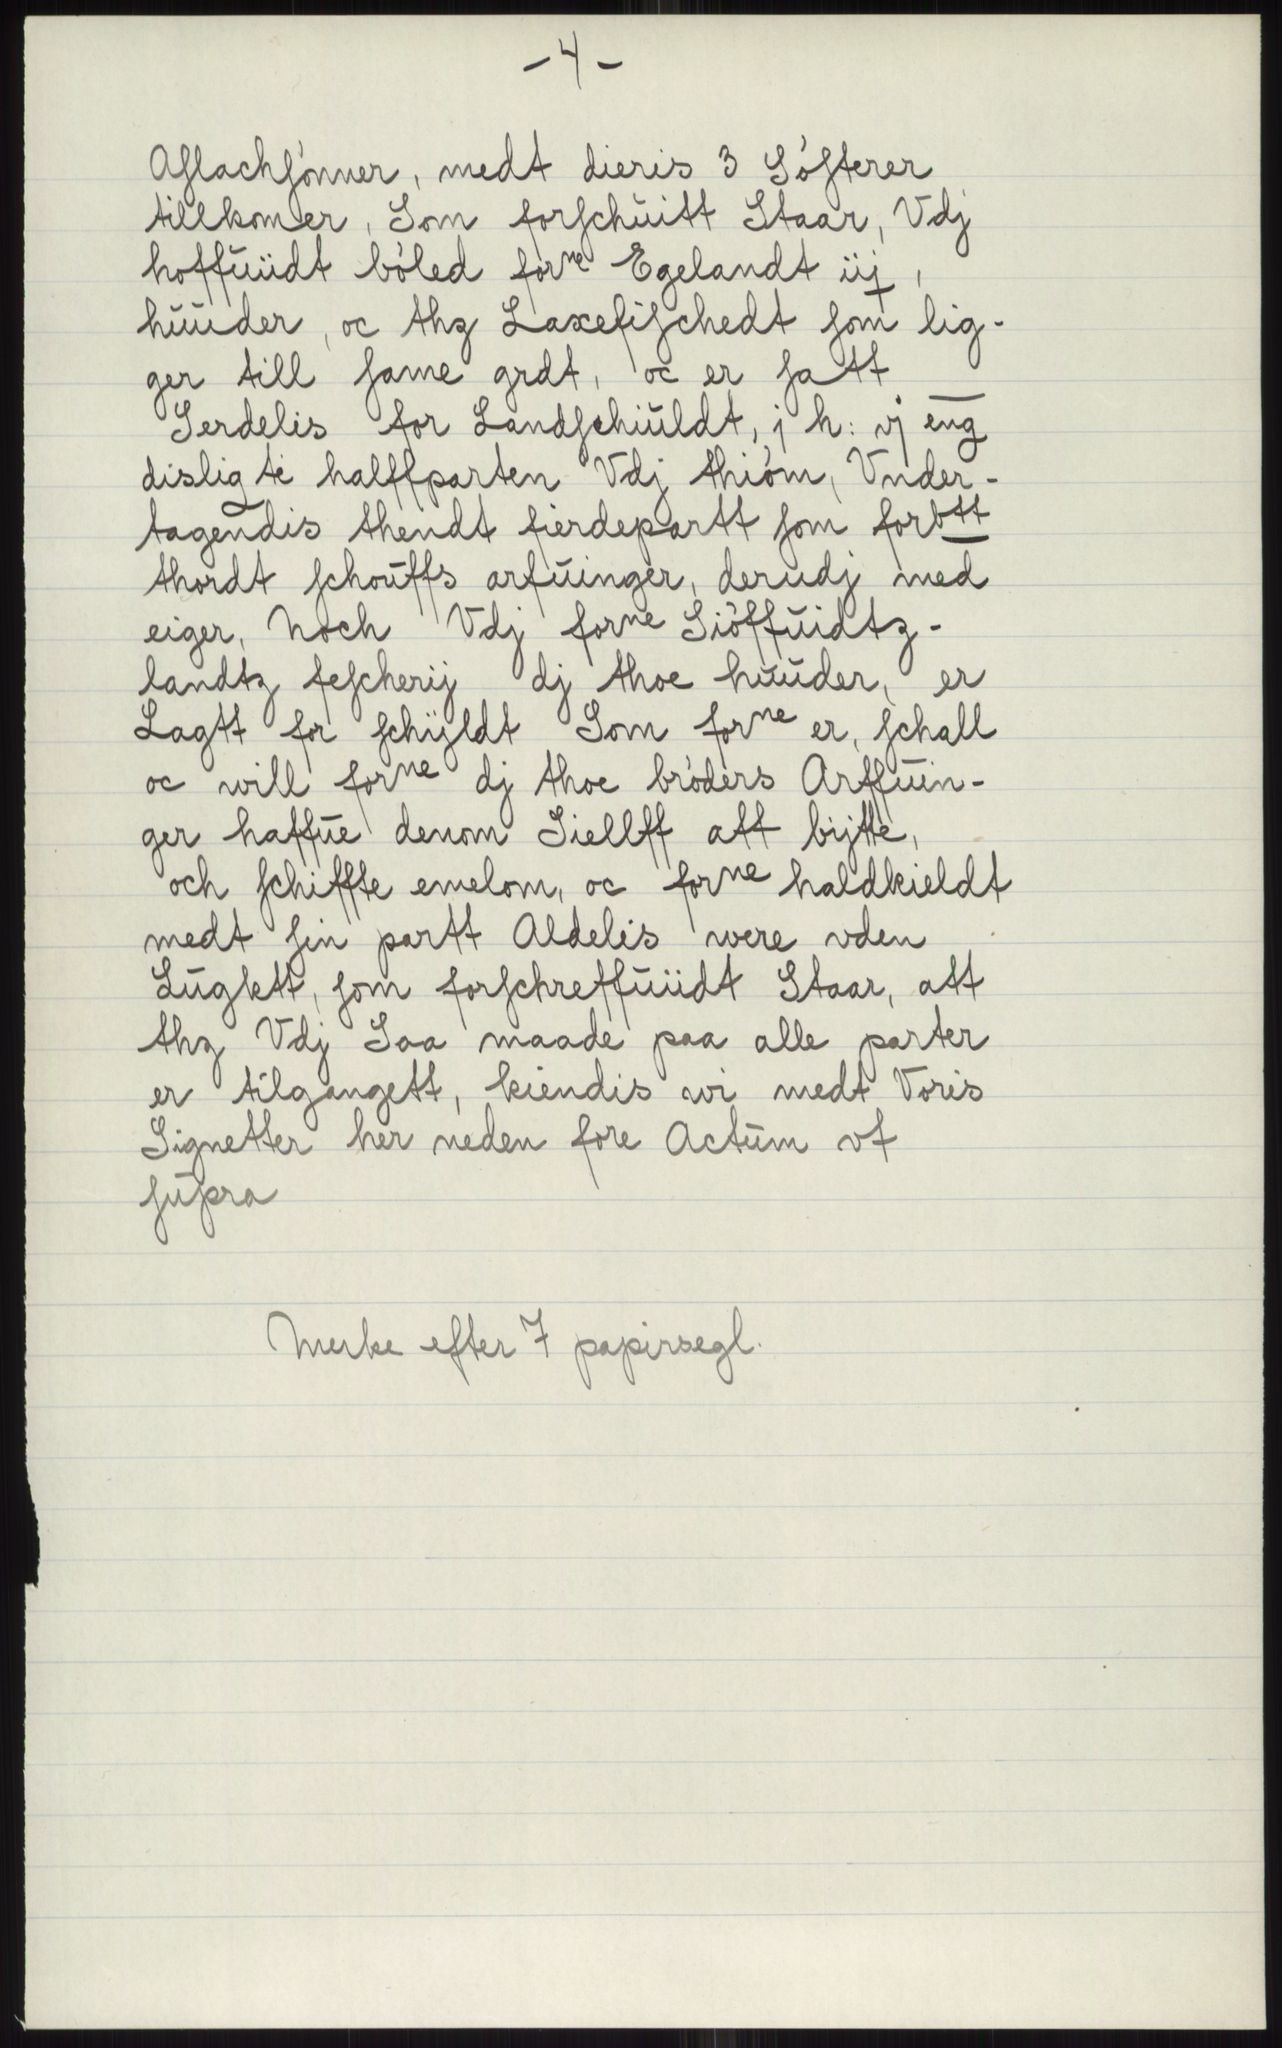 - 4 -
Aslachsónner, medt dieris 3 Sósterer
tillkomer, Som forschuitt Staar, Vdj
hoffuüdt bóled forne Egelandt iij,
huuder, oc thz Laxefischedt som lig-
ger till same grdt, oc er satt
Serdelis for Landschiuldt, j h: vj eng
disligte halffparten Vdj thióm, Vnder-
tagendis thendt fierdepartt som forbtt
thordt schouffs arfuinger, derudj med
eiger, Noch Vdj forne Siöffuidtz-
landtz fescherij dj thoe huuder, er
Lagtt for schÿldt Som forne er, schall
oc will forne dj thoe bróders Arffuin-
ger haffue denom Siellff att bijtte,
och schiffte emelom, oc forne haldkieldt
medt sin partt Aldelis were vden
Lugktt, som forschreffuüdt Staar, att
thz Vdj Saa maade paa alle parter
er tilgangett, kiendis wi medt Voris
Signetter her neden fore Actum vt
supra
Merke efter 7 papirsegl.